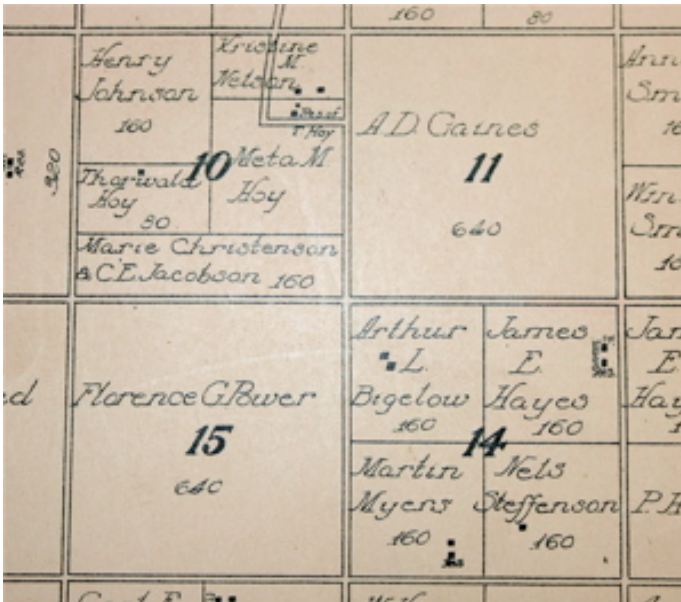 160
80
Henry
Johnson
160
Kristine
M
Nelson
T. Hoy
10
Thorwald
Hoy
80
Meta M
Hoy
Marie Christenson
& C.E. Jacobson 160
320
A.D. Gaines
11
640
Sm
Sm
Florence G. Power
15
640
Arthur
L.
Bigelow
160
James
E.
Hayes
160
14
Martin
Myens
160
Nels
Steffenson
160
Jan
E
Hay
ed
P.H